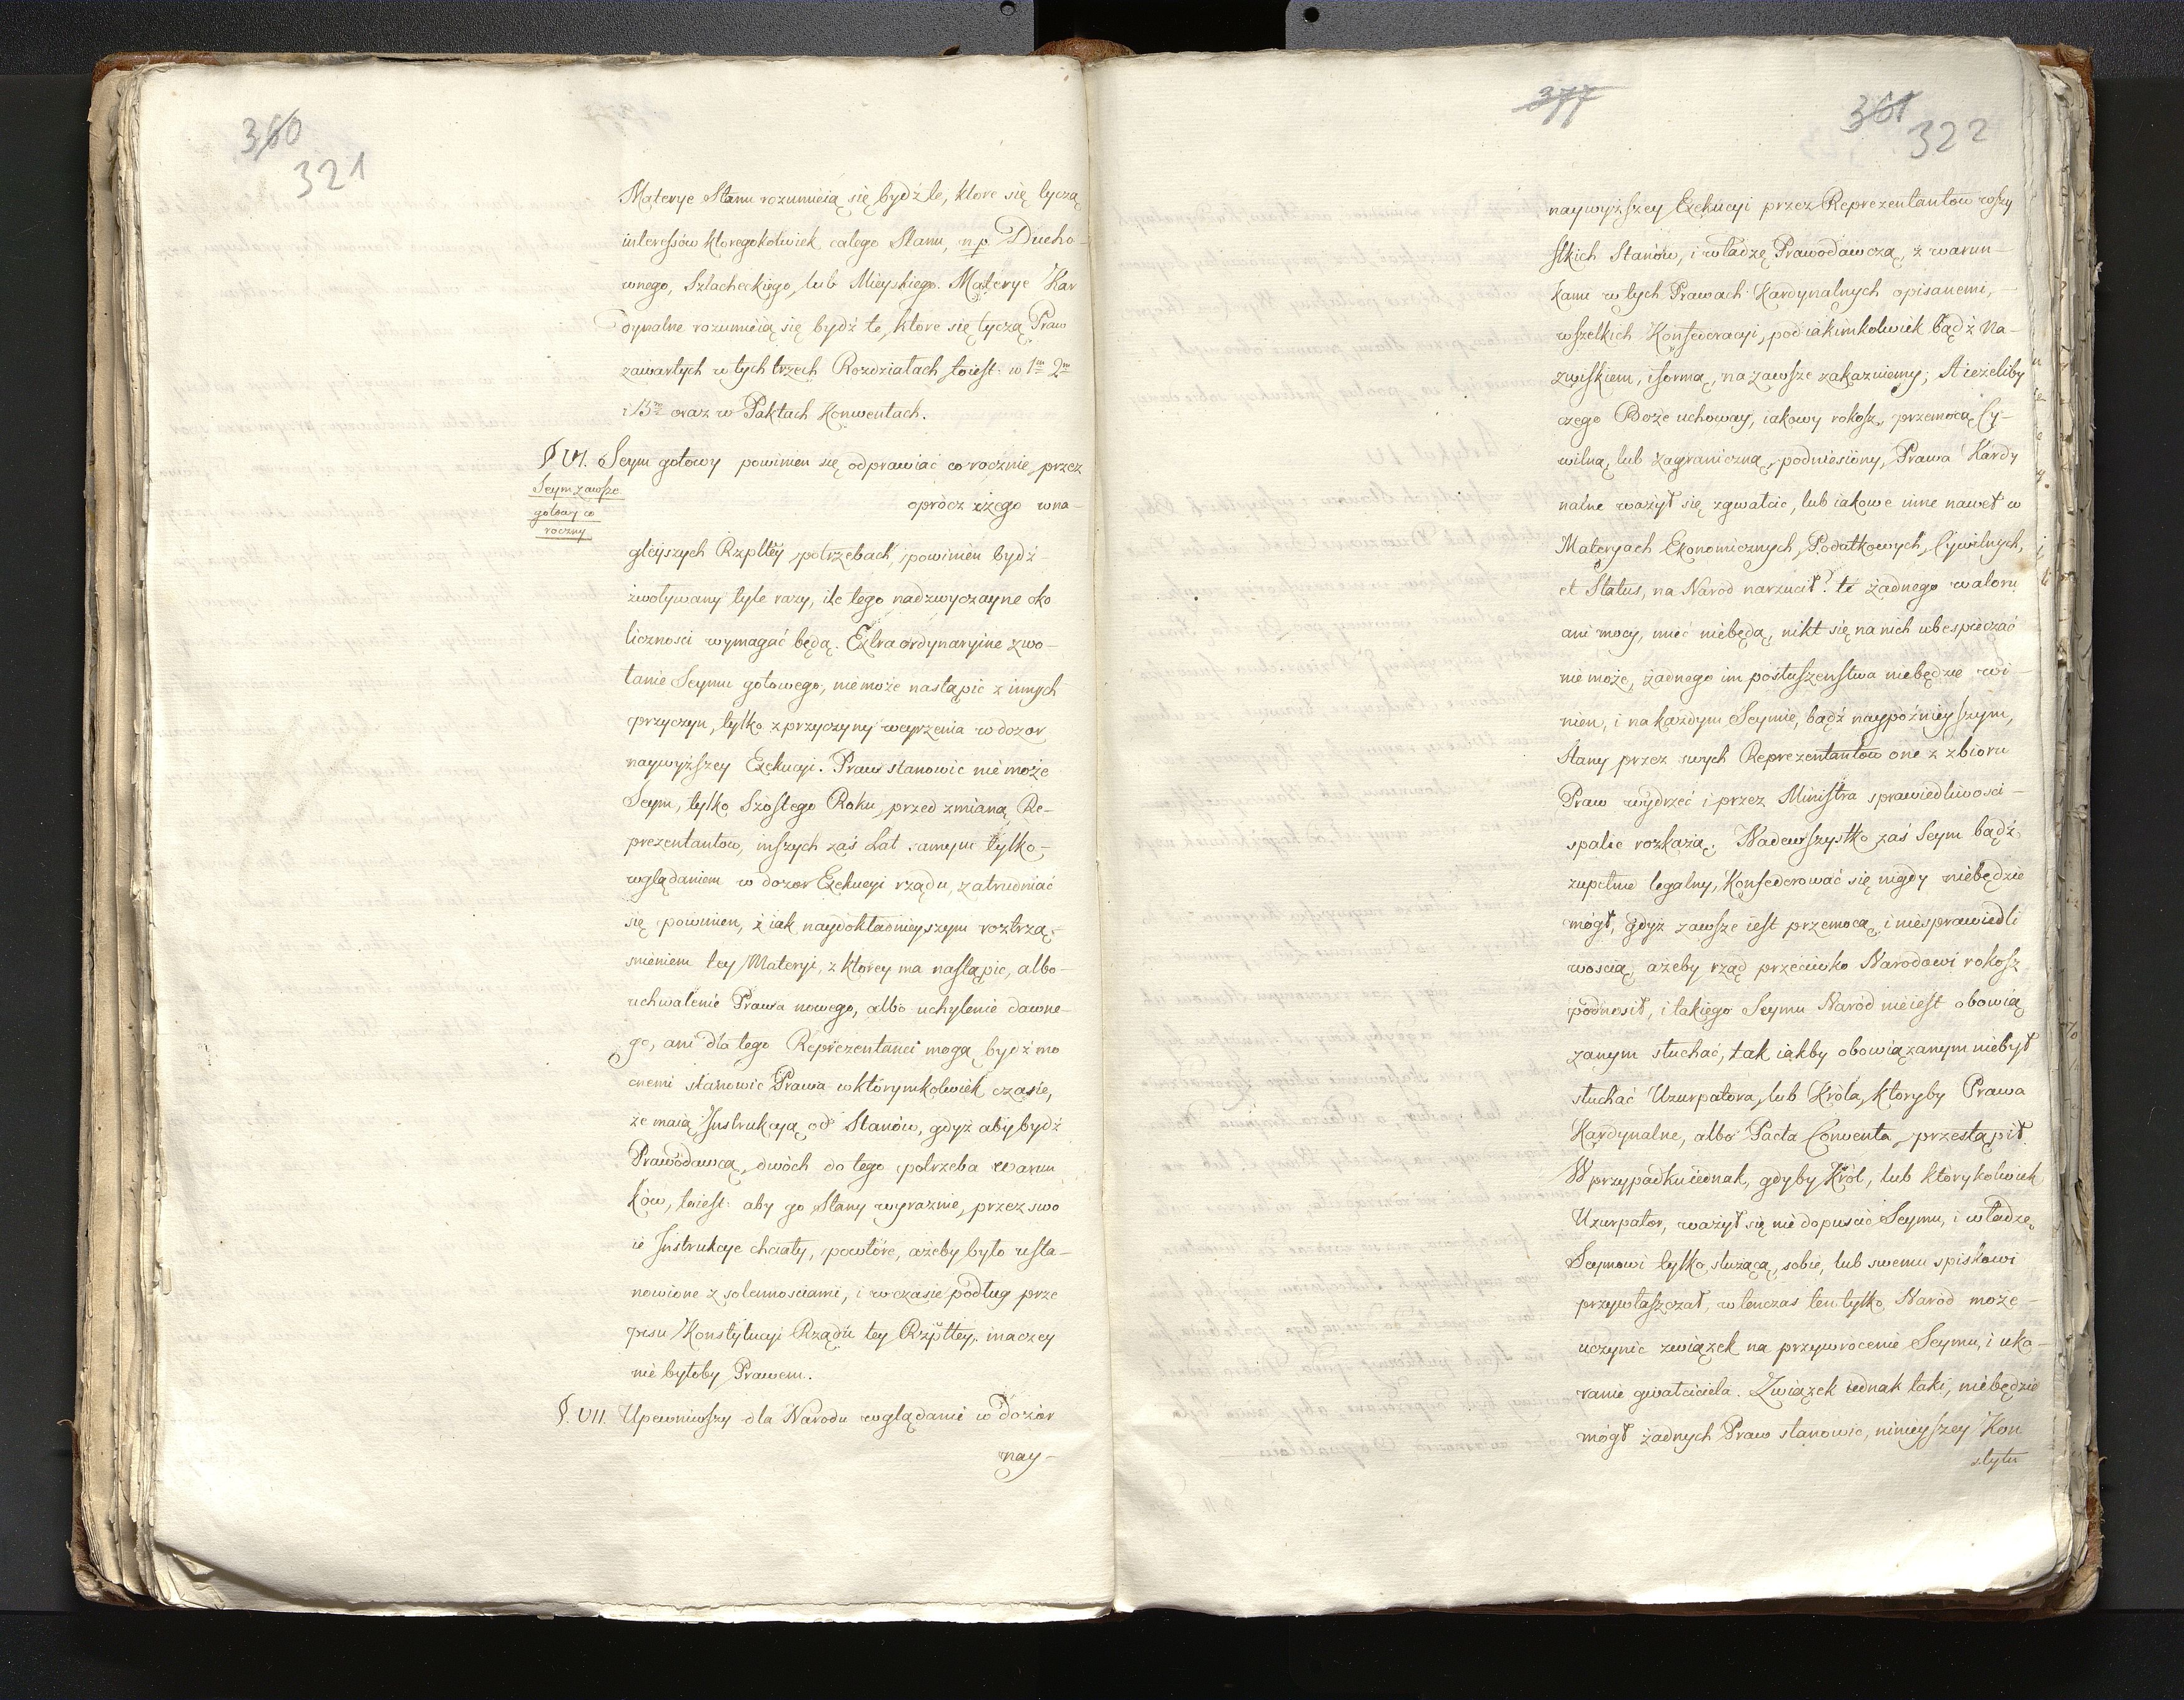 360
321
Materye Stanu rozumieią się bydź te, ktore się tyczą
interessów ktoregokolwiek całego Stanu, n.p. Ducho-
wnego, Szlacheckiego, lub Mieyskiego. Materye Kar
dynalne rozumieią się bydź te, ktore się tyczą Praw
zawartych w tych trzech Rozdziałach toiest: w 1m 2m
i oraz w Paktach Konwentach.
§ VI. Seym gotowy powinien się odprawiać corocznie, przez
Seym zawsze
gotowy co
roczny
oprócz wna-
gleyszych Rzpltey potrzebach, powinien bydź
zwoływany tyle razy, ile tego nadzwyczayne oko
liczności wymagać będą. Extraordynaryine zwo-
łanie Seymu gotowego, niemoże nastąpić z innych
przyczyn, tylko z przyczyny weyrzenia w dozor
naywyższey Exekucyi. Praw stanowić nie może
Seym, tylko Szóstego Roku, przed zmianą Re-
prezentantow, inszych zaś Lat samym tylko-
wglądaniem w dozor Exekucyi rządu, zatrudniać
się powinien, i iak naydokładnieyszym roztrzą-
śnieniem tey Materyi, z ktorey ma nastąpić, albo-
uchwalenie Prawa nowego, albo uchylenie dawne-
go, ani dla tego Reprezentanci mogą bydź mo
cnemi stanowić Prawa w którymkolwiek czasie,
że maią Instrukcyą od Stanów, gdyż aby bydź
Prawodawcą, dwóch do tego potrzeba warun
ków, toiest: aby go Stany wyraźnie, przez swo
ie Instrukcye chciały, powtóre, ażeby było usta-
nowione z solennościami, i w czasie podług prze
pisu Konstytucyi Rządu tey Rzpltey, inaczey
nie byłoby Prawem.
§. VII. Upewniwszy dla Narodu wglądanie w dozór
nay-
377
361
322
naywyższey Exekucyi przez Reprezentantow wszy
stkich Stanów, i władzę Prawodawczą, z warun-
kami w tych Prawach Kardynalnych opisanemi,-
wszelkich Konfederacyi, pod iakimkolwiek bądź Na-
zwiskiem, i formą, na zawsze zakazuiemy; A ieżeliby
czego Boże uchoway, iakowy rokosz, przemocą Cy-
wilną, lub zagraniczną, podniesiony, Prawa Kardy
nalne ważył się zgwałcić, lub iakowe inne nawet w
Materyach Ekonomicznych, Podatkowych, Cywilnych,
et Status, na Narod narzucił? te żadnego waloru
ani mocy, mieć niebędą, nikt się na nich ubespieczać
nie może, żadnego im posłuszeństwa niebędzie wi-
nien, i na każdym Seymie, bądź naypóźnieyszym,
Stany przez swych Reprezentantow one z zbioru
Praw wydrzeć i przez Ministra sprawiedliwości-
spalić rozkażą. Nadewszystko zaś Seym bądź
zupełnie legalny, Konfederować się nigdy niebędzie
mógł, gdyż zawsze iest przemocą, i niesprawiedli
wością, ażeby rząd przeciwko Narodowi rokosz
podnosił, i takiego Seymu Naród nieiest obowią
zanym słuchać, tak iakby obowiązanym niebył
słuchać Uzurpatora, lub Króla, ktoryby Prawa
Kardynalne, albo Pacta Conventa, przestąpił.
W przypadku iednak, gdyby Król, lub którykolwiek
Uzurpator, ważył się nie dopuścić Seymu, i władzę,
Seymowi tylko służącą, sobie, lub swemu spiskowi
przywłaszczał, wtenczas ten tylko Naród może-
uczynić związek na przywrocenie Seymu, i uka-
ranie gwałciciela. Związek iednak taki, niebędzie
mógł żadnych Praw stanowić, ninieyszey Kon
stytu